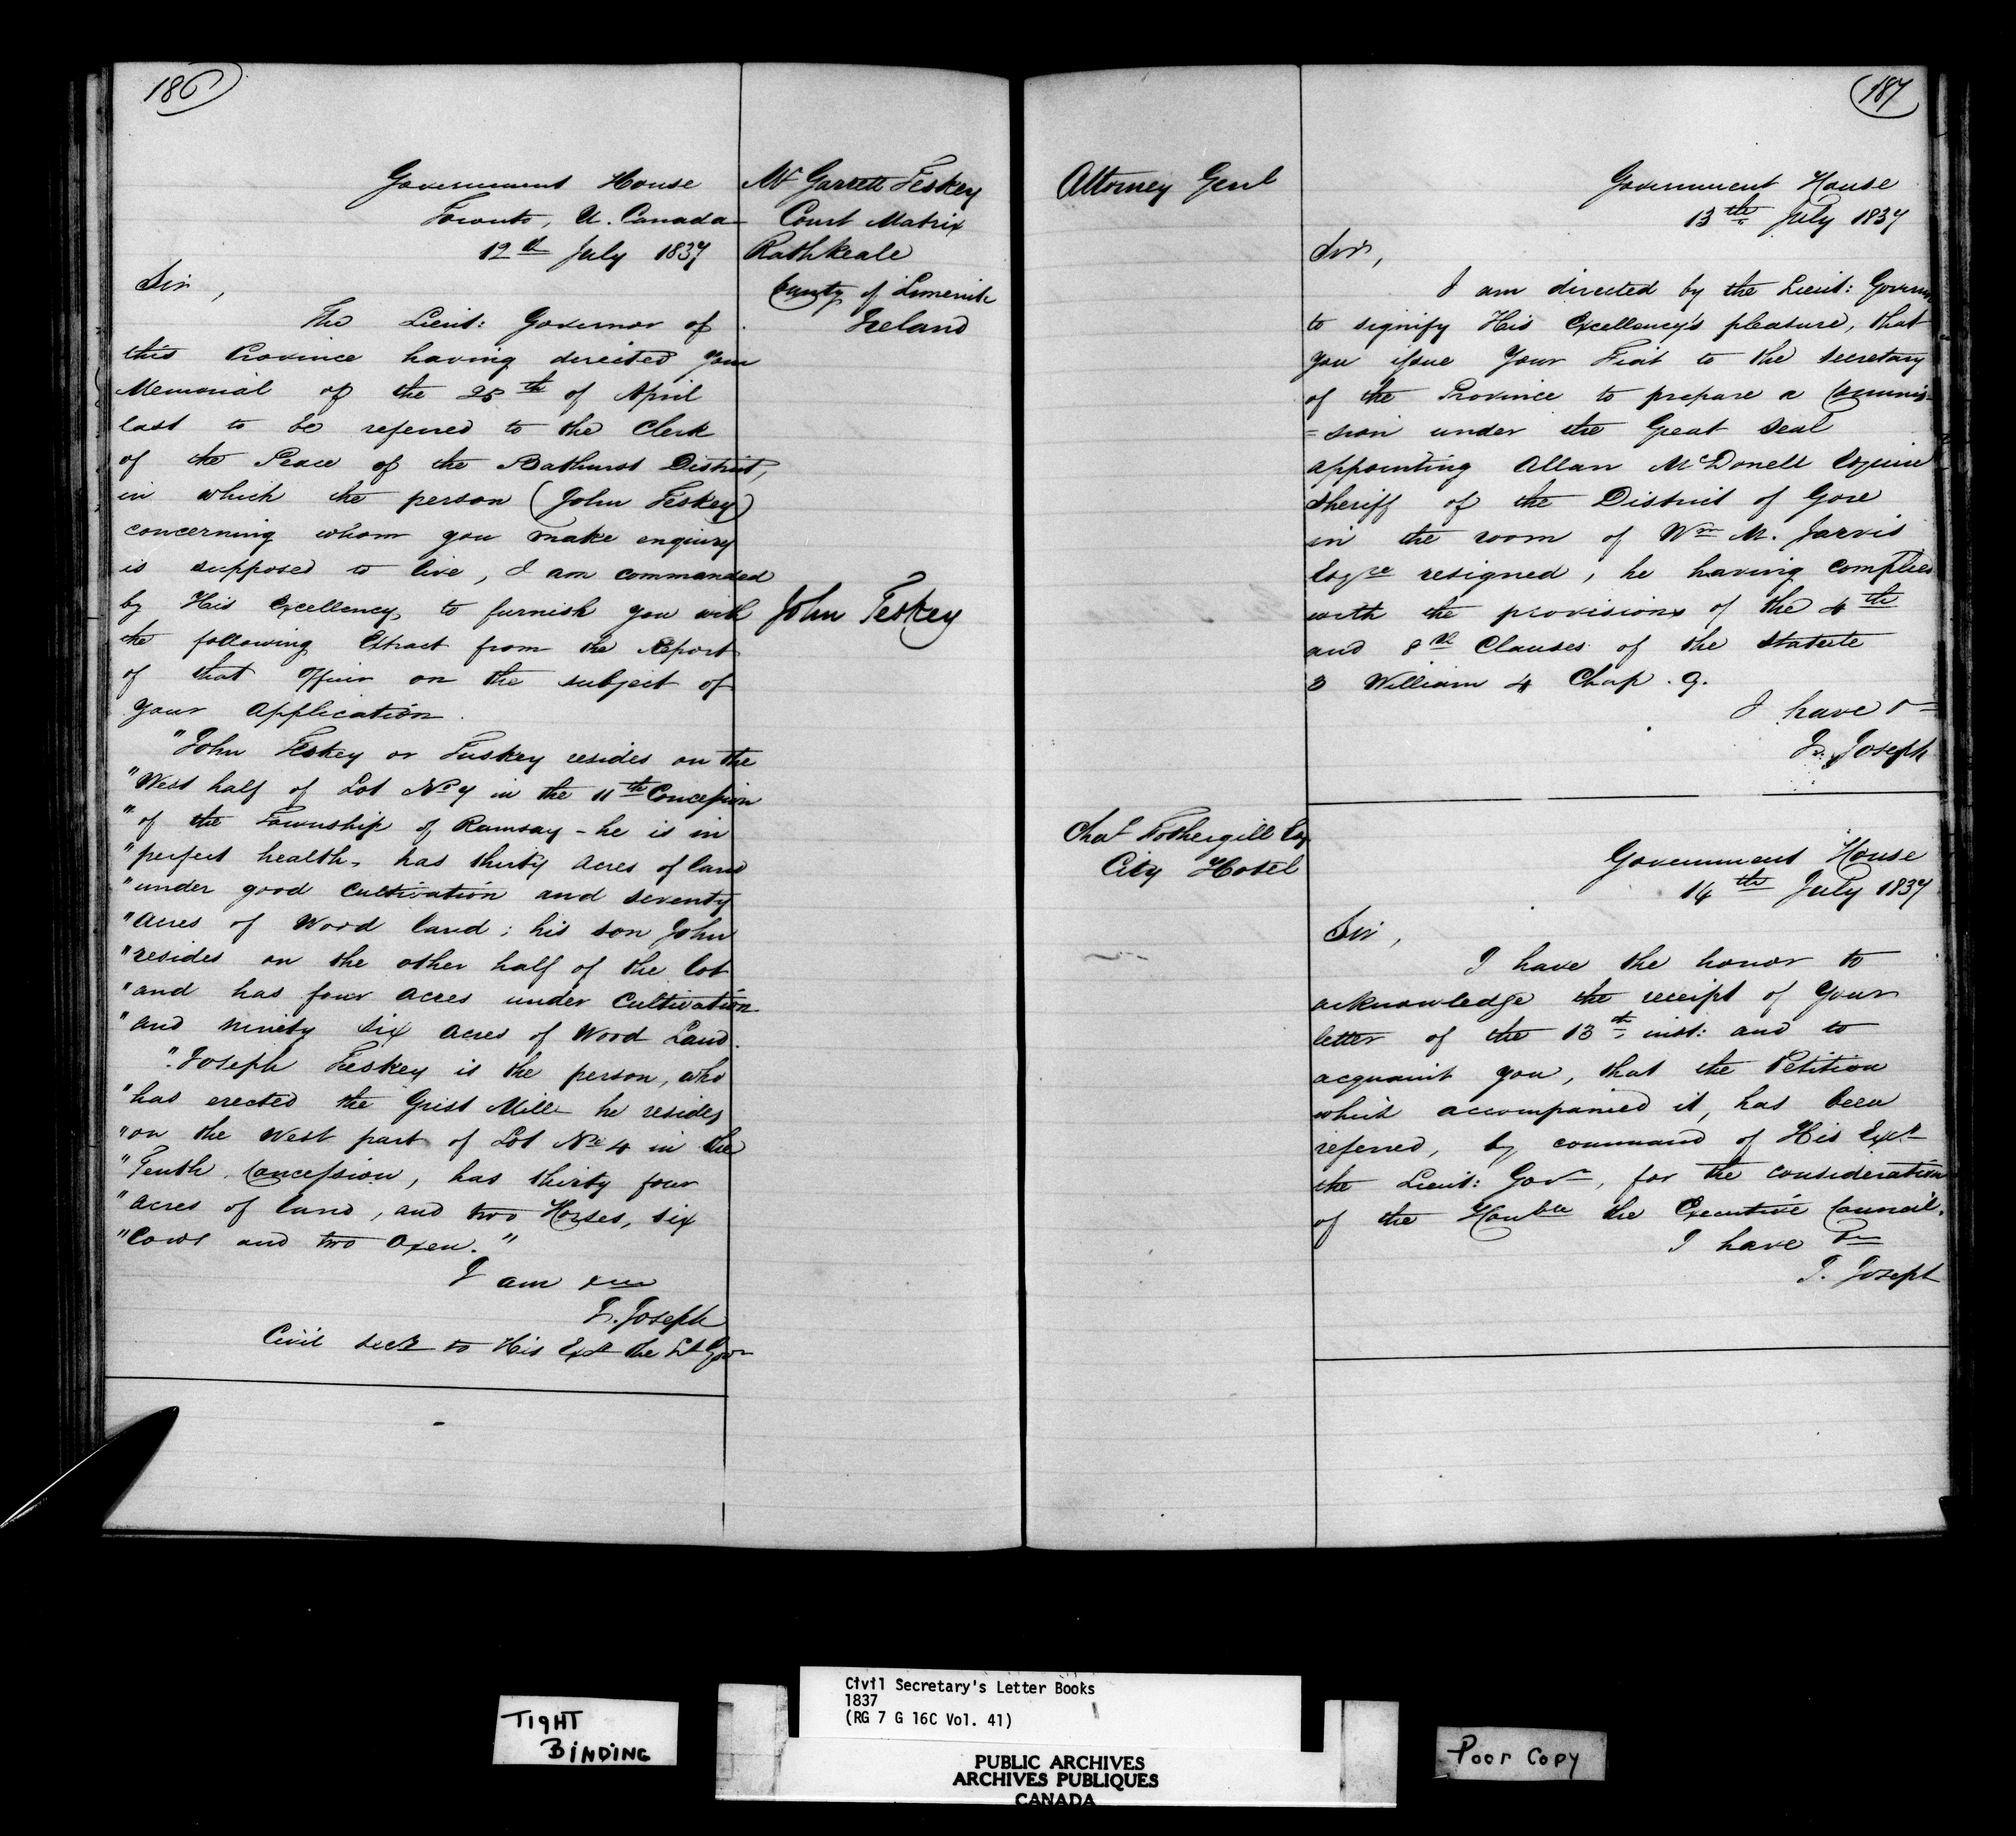 186
Government House
Toronto, U. Canada
12th July 1837
Mr Garrett Teskey
Court Matrix
Rathkeale
County of Limerick
Ireland
Sir,
The Lieut: Governor of
this Province having directed your
Memorial of the 25th of April
last to be referred to the Clerk
of the Peace of the Bathurst District,
in which the person (John Teskey)
concerning whom you make enquiry
is supposed to live, I am commanded
by His Excellency, to furnish you with
the following Extract from the Report
of that Officer on the subject of
your application.
John Teskey
"John Teskey or Tuskey resides on the
"West half of Lot No 7 in the 11th Concession
"of the Township of Ramsay - he is in
"perfect health, has thirty acres of land
"under good cultivation and seventy
"acres of Wood land; his son John
"resides on the other half of the lot
"and has four acres under Cultivation
"and ninety six acres of Wood Land.
"Joseph Teskey is the person, who
"has erected the Grist Mill he resides
"on the West part of Lot No 4 in the
"Tenth Concession, has thirty four
"acres of land, and two Horses, six
"Cows and two Oxen."
I am &c
J. Joseph
Civil Secy to His Exy the Lt Govr
187
Attorney Genl
Government House
13th July 1837
Sir,
I am directed by the Lieut: Governor
to signify His Excellency's pleasure, that
you issue Your Fiat to the Secretary
of the Province to prepare a Commis-
=sion under the Great Seal
appointing Allan McDonell Esquire
Sheriff of the District of Gore
in the room of Wm M. Jarvis
Esqre resigned, he having complied
with the provisions of the 4th
and 8th Clauses of the Statute
3 William 4 Chap. 9.
I have &c
J. Joseph
Chas Fothergill Esq
City Hotel
Government House
14th July 1837
Sir,
I have the honor to
acknowledge the receipt of Your
letter of the 13th inst: and to
acquaint you, that the Petition
which accompanied it, has been
referred, by command of His Exy
the Lieut: Govr, for the consideration
of the Honble the Executive Council.
I have &c
J. Joseph
TIGHT
BINDING
Civil Secretary's Letter Books
1837
(RG 7 G 16C Vol. 41)
PUBLIC ARCHIVES
ARCHIVES PUBLIQUES
CANADA
Poor Copy